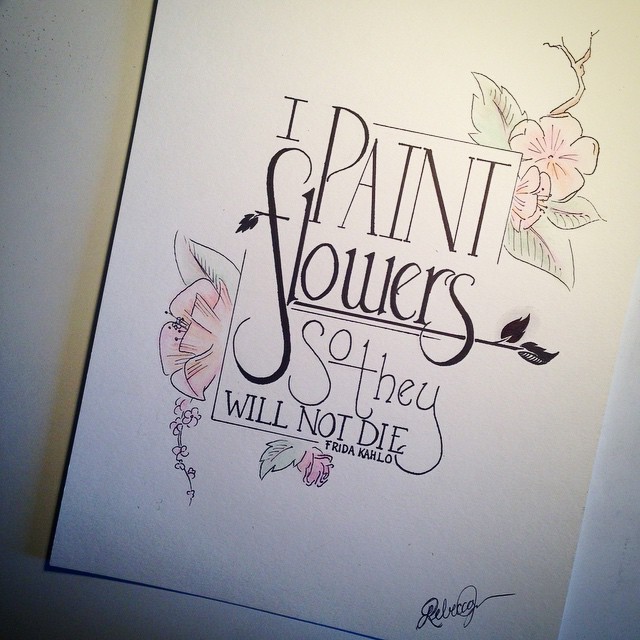 I PAINT
flowers
So they
WILL NOT DIE
FRIDA KAHLO
Rebecca